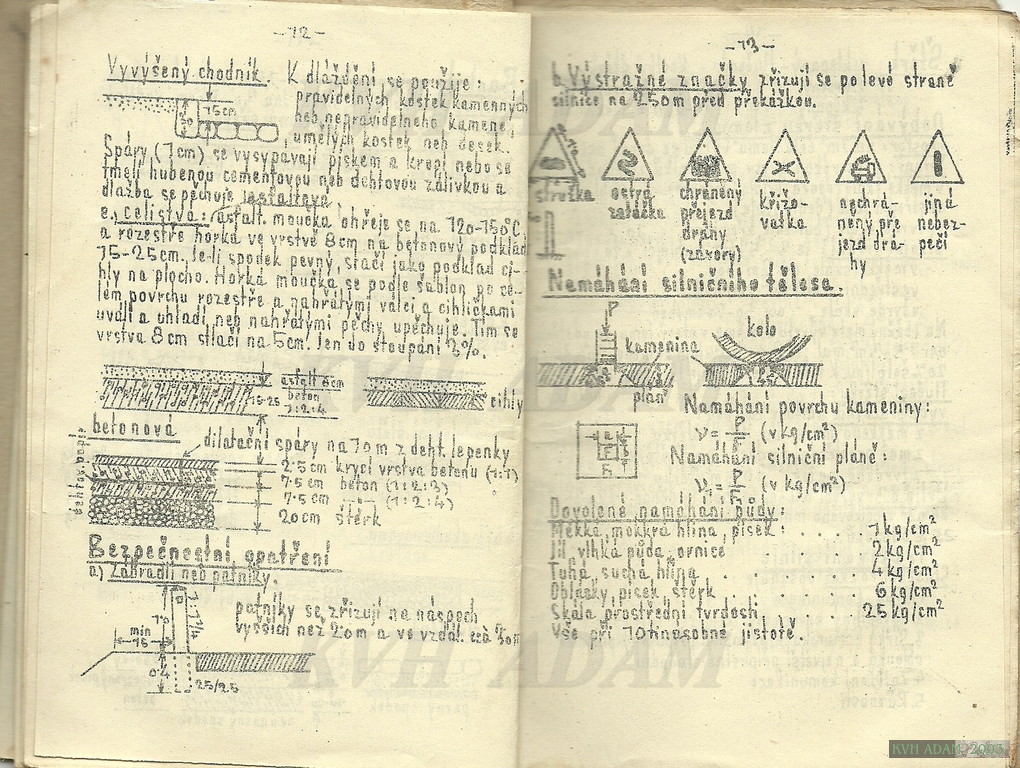 -12-
Vyvýšený chodník. K dláždění se použije:
pravidelných kostek kamenných
neb nepravidelného kamene,
umělých kostek neb desek.
15cm
Spáry (1cm) se vysypávají pískem a kropí nebo se
tmelí hubenou cementovou neb dehtovou zálivkou a
dlažba se pěchuje
e, celistvá: asfalt. moučka ohřeje se na 120-150°C
a rozestře horká ve vrstvě 8cm na betonový podklad
15-25cm. Je-li spodek pevný, stačí jako podklad ci-
hly na plocho. Horká moučka se podle šablon po ce-
lém povrchu rozestře a nahřátými válci a cihličkami
uválí a uhladí neb nahřátými pěchy upěchuje. Tím se
vrstva 8cm stlačí na 5cm. Jen do stoupání 2%.
15-25
asfalt 6cm
beton
1:2:4
cihly
betonová
dilatační spáry na 10m z deht. lepenky
2·5cm krycí vrstva betonu (1:1)
7·5cm beton (1:2:3)
7·5cm (1:2:4)
20cm štěrk
Bezpečnestní opatření
a) Zábradlí neb patníky.
patníky se zřizují na náspech
vyšších než 20m a ve vzdál.
min
0·4
25/25
-13-
b. Výstražné značky zřizují se po levé straně
silnice na 250m před překážkou.
ostrá
zatáčka
chráněný
přejezd
dráhy
(závory)
křižo-
vatka
nechrá-
něný pře
jezd drá-
hy
jiná
nebez-
pečí
Namáhání silničního tělesa.
P
kolo
kamenina
pláň
Namáhání povrchu kameniny:
ν = P/F (v kg/cm²)
Namáhání silniční pláně:
ν₁ = P/F₁ (v kg/cm²)
a
F
F₁
Dovolené namáhání půdy:
Měkká, mokrá hlína, písek: . . . . 1 kg/cm²
Jíl, vlhká půda, ornice . . . . 2 kg/cm²
Tuhá suchá hlína . . . . . . 4 kg/cm²
Oblázky, písek štěrk . . . . . . 6 kg/cm²
Skála prostřední tvrdosti . . . . 25 kg/cm²
Vše při 10tinásobné jistotě.
KVH ADAM
KVH ADAM
KVH ADAM
KVH ADAM 2005